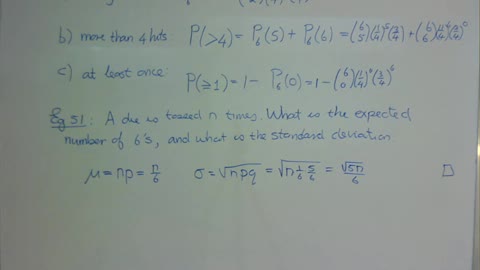 b) more than 4 hits: P(>4) = P₆(5) + P₆(6) = (6 5)(1/4)⁵(3/4)¹ + (6 6)(1/4)⁶(3/4)⁰
c) at least once: P(≥1) = 1 - P₆(0) = 1 - (6 0)(1/4)⁰(3/4)⁶
Eg 51: A die is tossed n times. What is the expected
number of 6's, and what is the standard deviation.
μ = np = n/6 σ = √npq = √n 1/6 5/6 = √5n/6 □